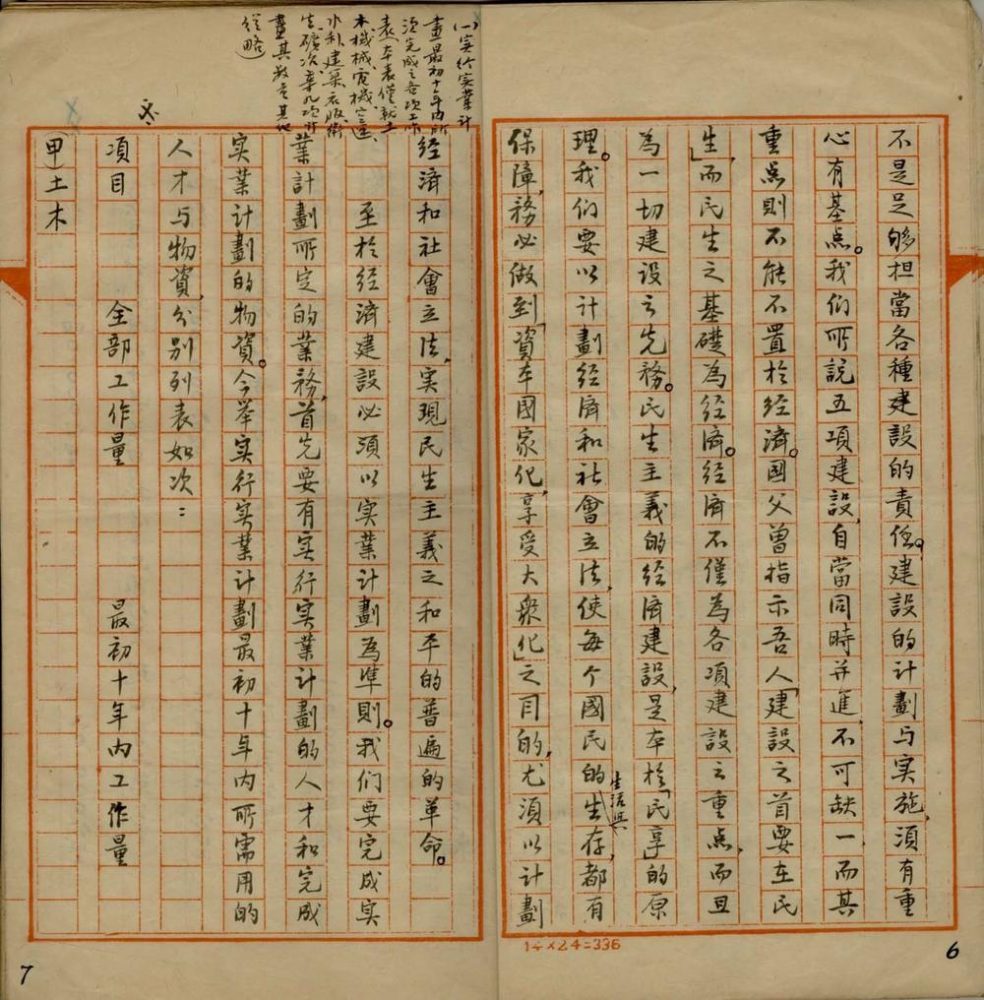 不是足够担當各種建設的責任。建設的計劃与实施,須有重
心有基点。我们所説五項建設,自當同時并進,不可缺一,而其
重点則不能不置於經済。國父曾指示吾人「建設之首要在民
生」,而民生之基礎為經済。經済不僅為各項建設之重点,而且
為一切建設之先務。民生主義的經済建設,是本於「民享」的原
理。我们要以計劃經済和社會立法,使每个國民的生存,都有
生活與
保障,務必做到「資本國家化,享受大衆化」之目的,尤須以計劃
14×24=336
6
經済和社會立法,实現民生主義之和平的普遍的革命。
至於經済建設必須以实業計劃為準則。我们要完成实
業計劃所定的業務,首先要有实行实業計劃的人才和完成
实業計劃的物資。今举实行实業計劃最初十年内所需用的
人才与物資,分别列表如次:
項目 全部工作量 最初十年内工作量
甲)土木
(一)实行实業計
畫最初十年内所
須完成之各項工作
表(本表僅就土
木、機械、電機、空運、
水利、建築、衣服、衛
生、礦冶業九項計
畫其数量其他
從略)
7